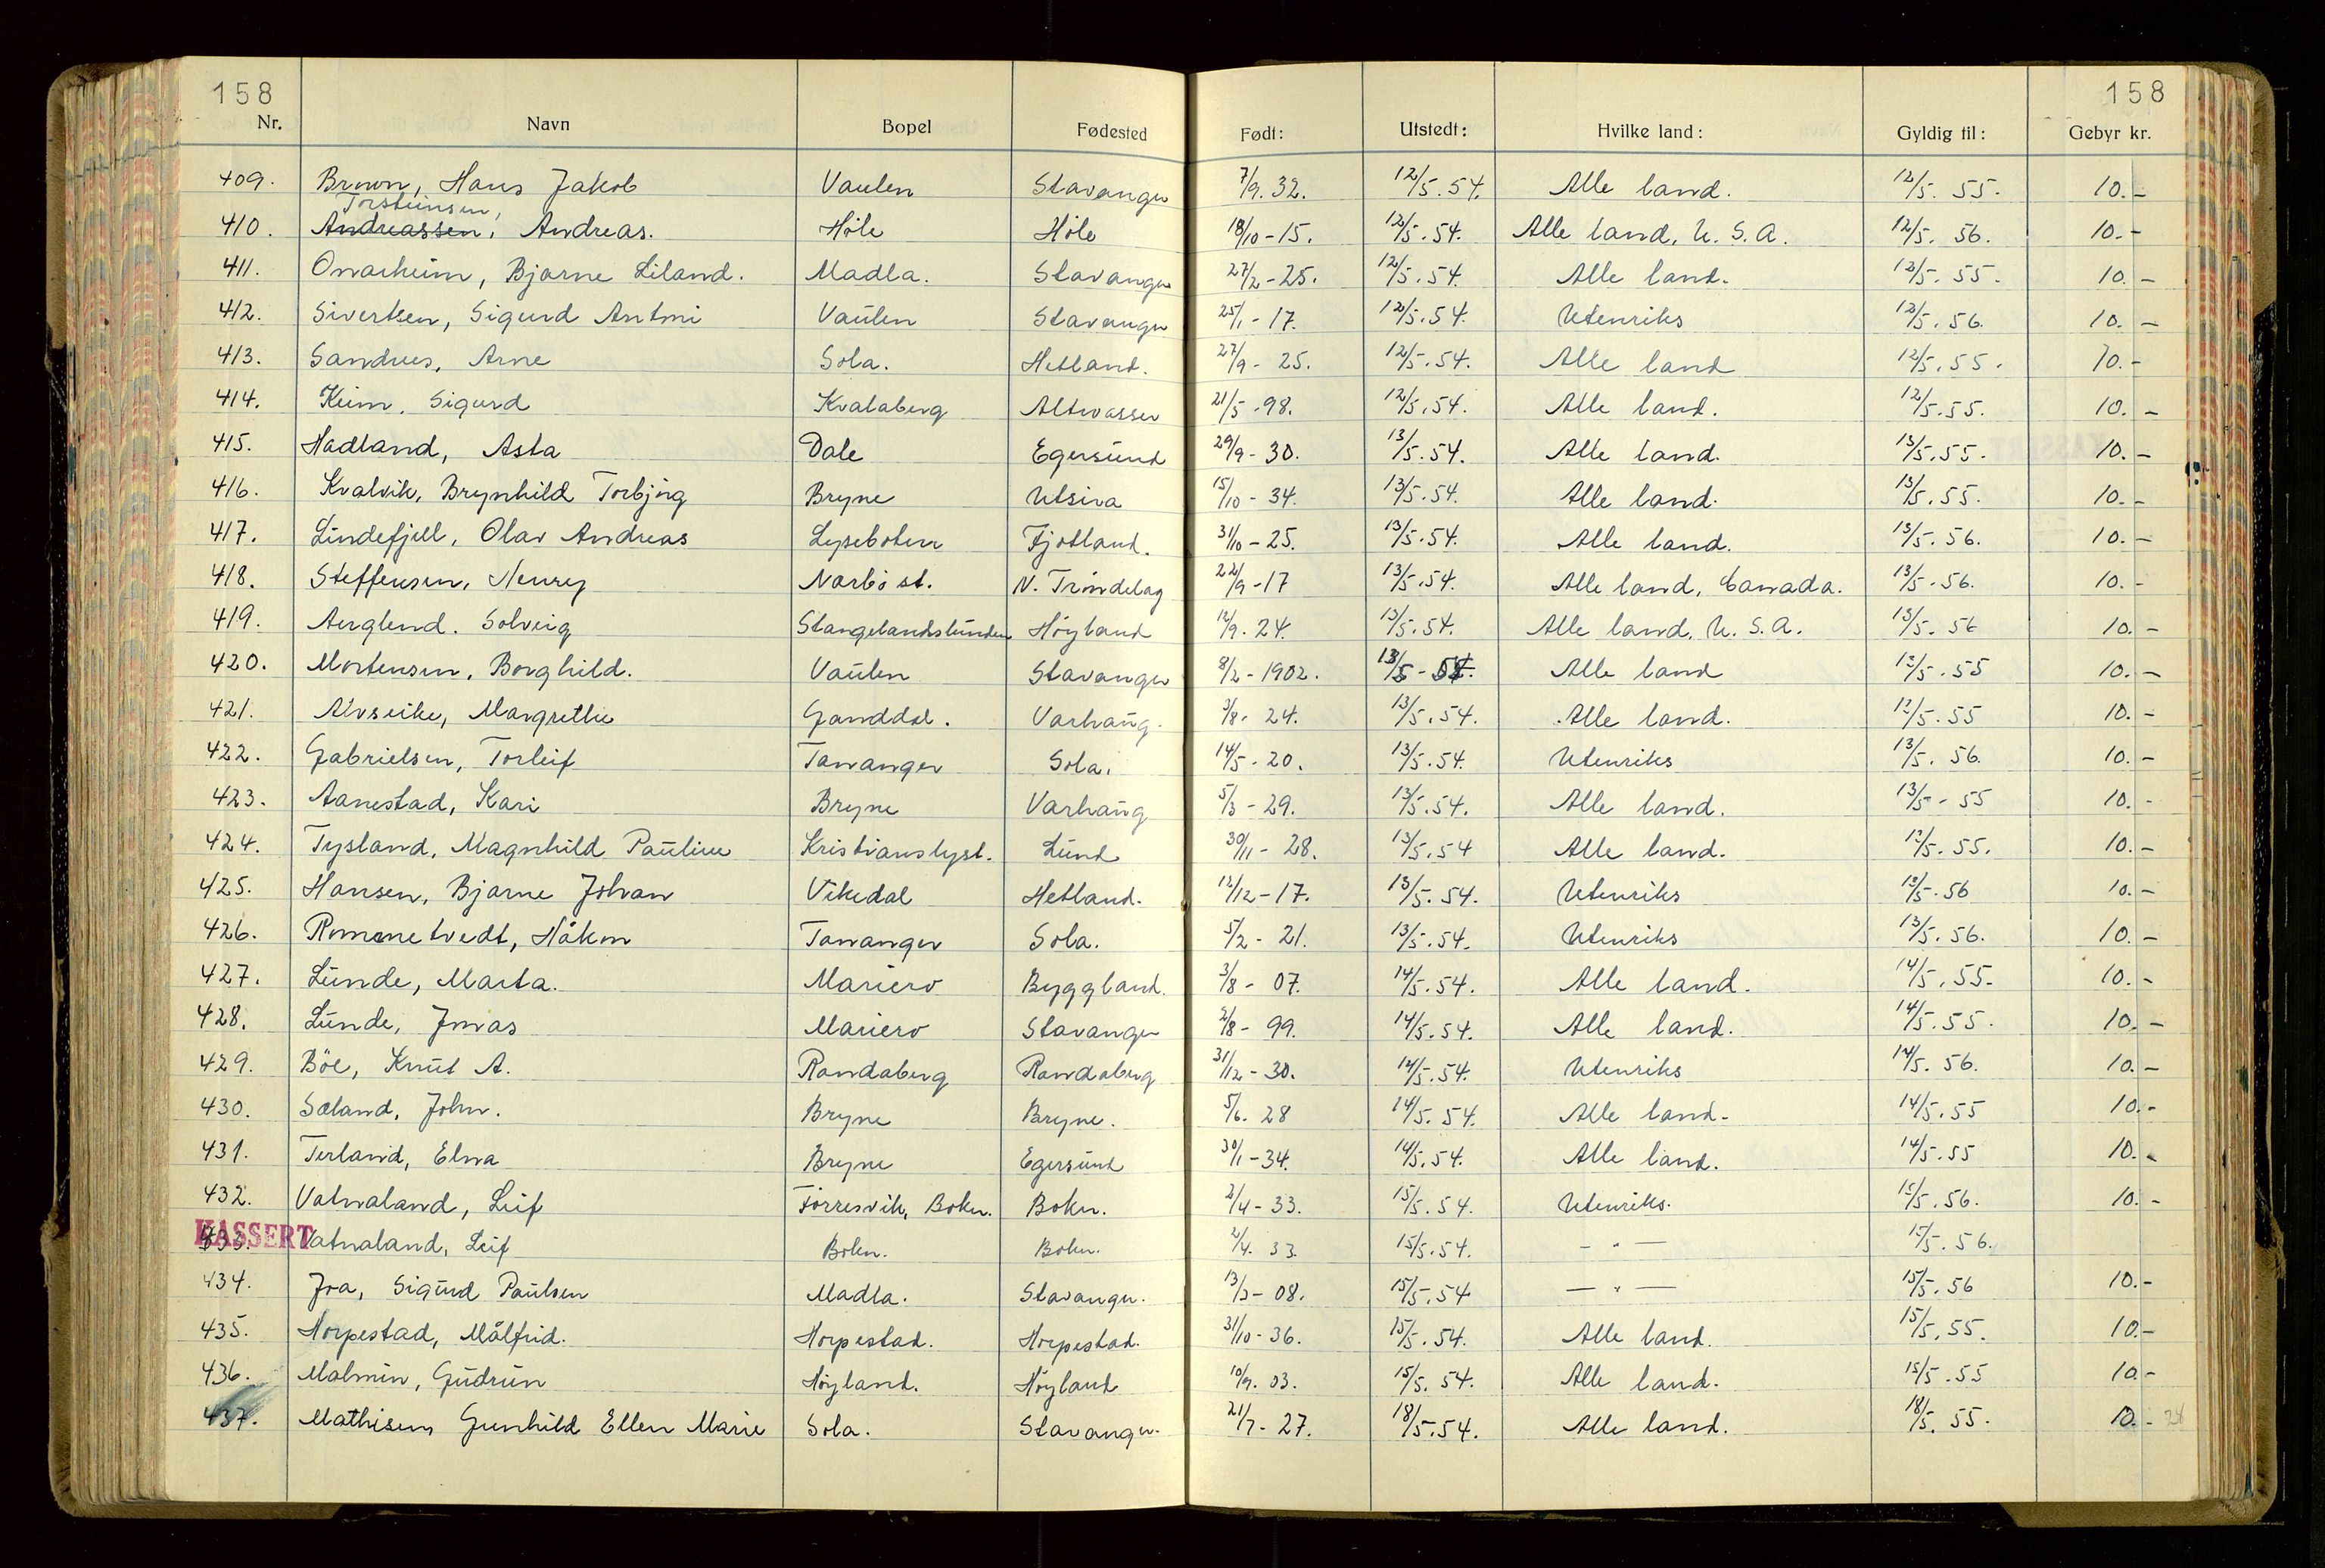 158 158
Nr. Navn Bopel Fødested Født: Utstedt: Hvilke land: Gyldig til: Gebyr kr.
409. Brown, Hans Jakob Vaulen Stavanger 7/9. 32. 12/5. 54. Alle land. 12/5. 55. 10.-
Torsteinsen,
410. Andreassen, Andreas. Höle Höle 18/10-15. 12/5. 54. Alle land, U. S. A. 12/5. 56. 10.-
411. Omarheim, Bjarne Liland. Madla. Stavanger 27/2-25. 12/5. 54. Alle land. 12/5. 55. 10.-
412. Sivertsen, Sigurd Antoni Vaulen Stavanger 25/1-17. 12/5. 54. Utenriks 12/5. 56. 10.-
413. Sandnes, Arne Sola. Hetland. 27/9-25. 12/5. 54. Alle land 12/5. 55. 10.-
414. Keim, Sigurd Kvalaberg Altwasser 21/5-98. 12/5. 54. Alle land. 12/5. 55. 10.-
415. Hadland, Asta Dale Egersund 29/9-30. 13/5. 54. Alle land. 13/5. 55. 10.-
416. Kvalvik, Brynhild Torbjörg Bryne Utsira 15/10-34. 13/5. 54. Alle land. 13/5. 55. 10.-
417. Lindefjell, Olav Andreas Lysebotten Fjotland. 31/10-25. 13/5. 54. Alle land. 13/5. 56. 10.-
418. Steffensen, Henry Narbö st. N. Tröndelag 22/9-17 13/5. 54. Alle land, Canada. 13/5. 56. 10.-
419. Aerglend. Solveig Stangelandslunden Höyland 12/9. 24. 13/5. 54. Alle land, U. S. A. 13/5. 56 10.-
420. Mortensen, Borghild. Vaulen Stavanger 8/2-1902. 13/5-54. Alle land 13/5. 55 10.-
421. Alvseike, Margrethe Ganddal. Varhaug. 3/8-24. 13/5. 54. Alle land. 13/5. 55 10.-
422. Gabrielsen, Torleif Tananger Sola. 14/5-20. 13/5. 54. Utenriks 13/5. 56. 10.-
423. Aanestad, Kari Bryne Varhaug 5/3-29. 13/5. 54. Alle land. 13/5-55 10.-
424. Tysland, Magnhild Pauline Kristianslyst. Lund 30/11-28. 13/5. 54 Alle land. 13/5. 55. 10.-
425. Hansen, Bjarne Johan Vikedal Hetland. 12/12-17. 13/5. 54. Utenriks 13/5. 56 10.-
426. Rommetvedt, Håkon Tananger Sola. 5/2-21. 13/5. 54. Utenriks 13/5. 56. 10.-
427. Lunde, Marta. Mariero Byggland. 3/8-07. 14/5. 54. Alle land. 14/5. 55. 10.-
428. Lunde, Jonas Mariero Stavanger 2/8-99. 14/5. 54. Alle land. 14/5. 55. 10.-
429. Böe, Knut A. Randaberg Randaberg 31/12-30. 14/5. 54. Utenriks 14/5. 56. 10.-
430. Sæland, John. Bryne Bryne. 5/6. 28 14/5. 54. Alle land. 14/5. 55 10.-
431. Terland, Elna Bryne Egersund 30/1-34. 14/5. 54. Alle land. 14/5. 55 10.-
432. Vatnaland, Leif Förresvik, Bokn. Bokn. 2/4-33. 15/5. 54. Utenriks. 15/5. 56. 10.-
KASSERT
433. Vatnaland, Leif Bokn. Bokn. 2/4. 33. 15/5. 54. - " - 15/5. 56.
434. Joa, Sigurd Paulsen Madla. Stavanger. 13/3-08. 15/5. 54 - " - 15/5. 56 10.-
435. Horpestad, Målfrid. Horpestad. Horpestad. 31/10-36. 15/5. 54. Alle land. 15/5. 55. 10.-
436. Malmin, Gudrun Höyland. Höyland 10/9. 03. 15/5. 54. Alle land. 15/5. 55 10.-
437. Mathisen, Gunhild Ellen Marie Sola. Stavanger. 21/7-27. 18/5. 54. Alle land. 18/5. 55. 10.- 28